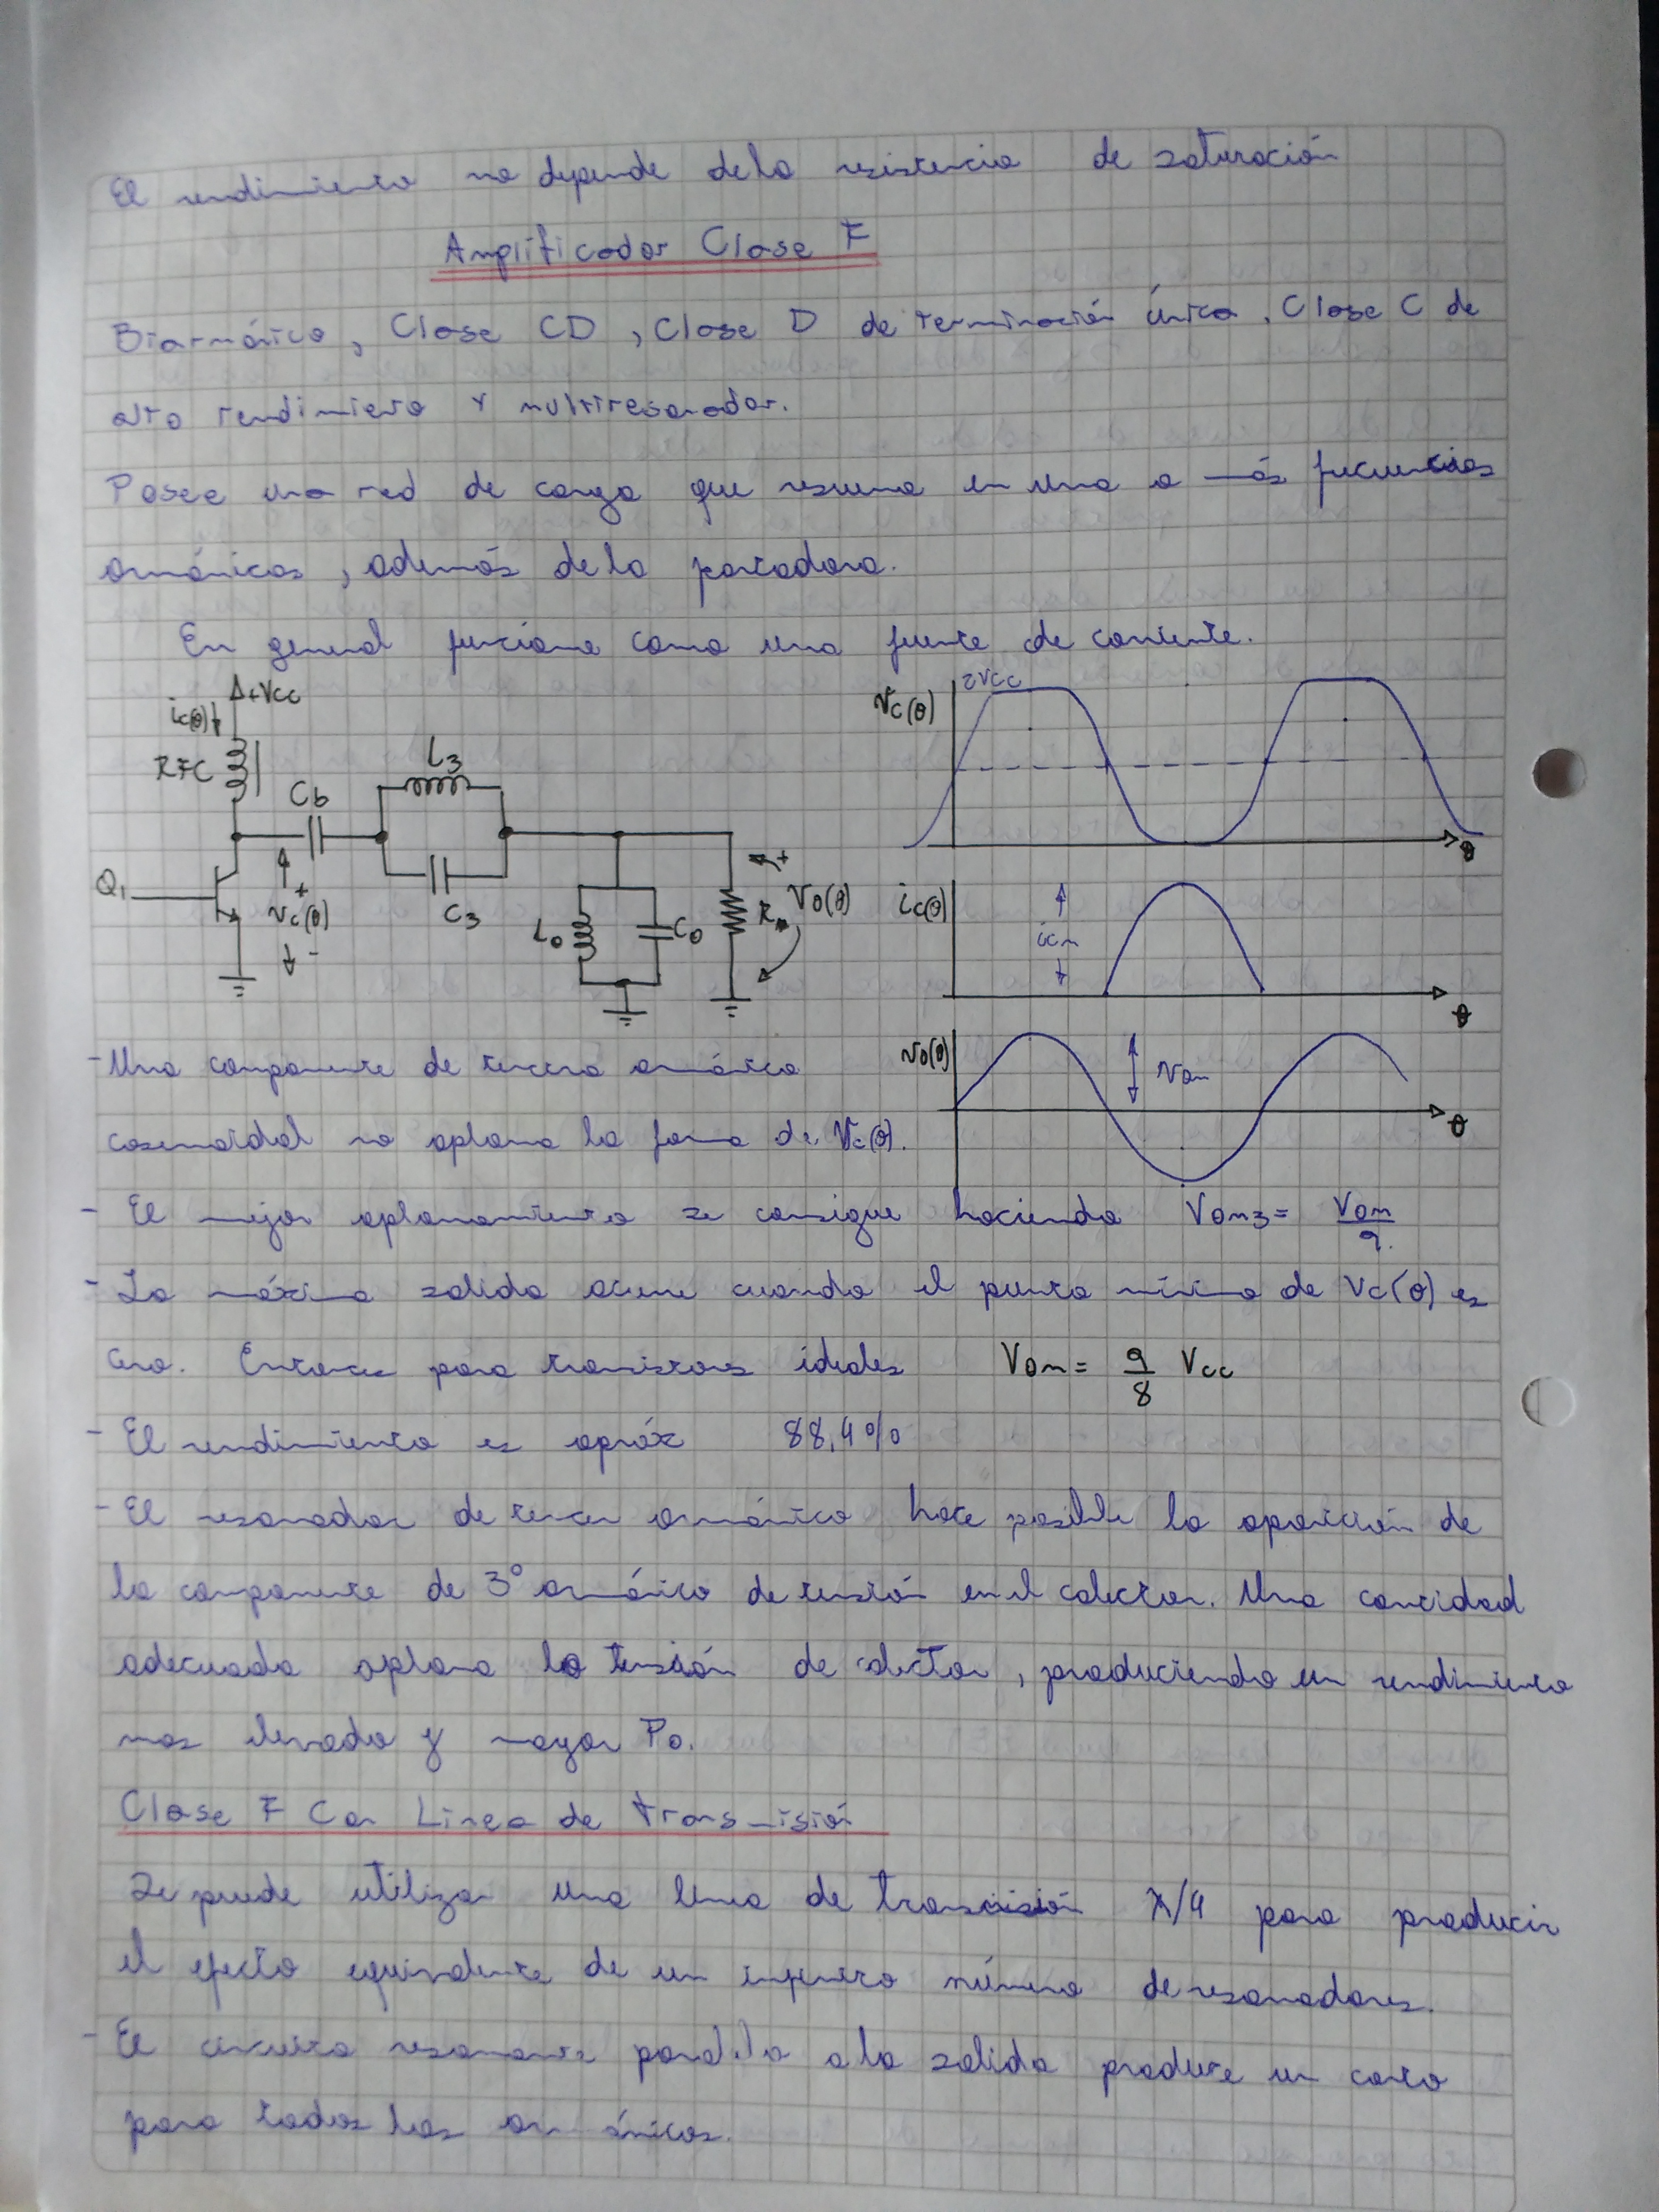 El rendimiento no depende de la resistencia de saturación
Amplificador Clase F
Biarmónico, Clase CD, Clase D de terminación única, Clase C de
alto rendimieto y multiresonador.
Posee una red de carga que resuena en una o más frecuencias
armónicas, además de la portadora.
En general funciona como una fuente de corriente.
+Vcc
ic(θ)
RFC
Cb
L3
C3
Q1
+
vc(θ)
-
L0
C0
R
+
V0(θ)
Vc(θ)
2Vcc
θ
ic(θ)
icm
θ
v0(θ)
Vom
θ
- Una componente de tercera armónica
cosenoidal no aplana la forma de Vc(θ).
- El mejor aplanamiento se consigue haciendo Vom3 = Vom/9
- La máxima salida ocurre cuando el punto mínimo de Vc(θ) es
cero. Entonces para transistores ideales Vom = 9/8 Vcc
- El rendimiento es apróx 88,4%
- El resonador de tercer armónico hace posible la aparición de
la componente de 3° armónico de tensión en el colector. Una cantidad
adecuada aplana la tensión de colector, produciendo un rendimiento
mas elevado y mayor Po.
Clase F Con Linea de transmisión
Se puede utilizar una linea de transmisión λ/4 para producir
el efecto equivalente de un infinito número de resonadores.
- El circuito resonante paralelo a la salida produce un corto
para todos los armónicos.